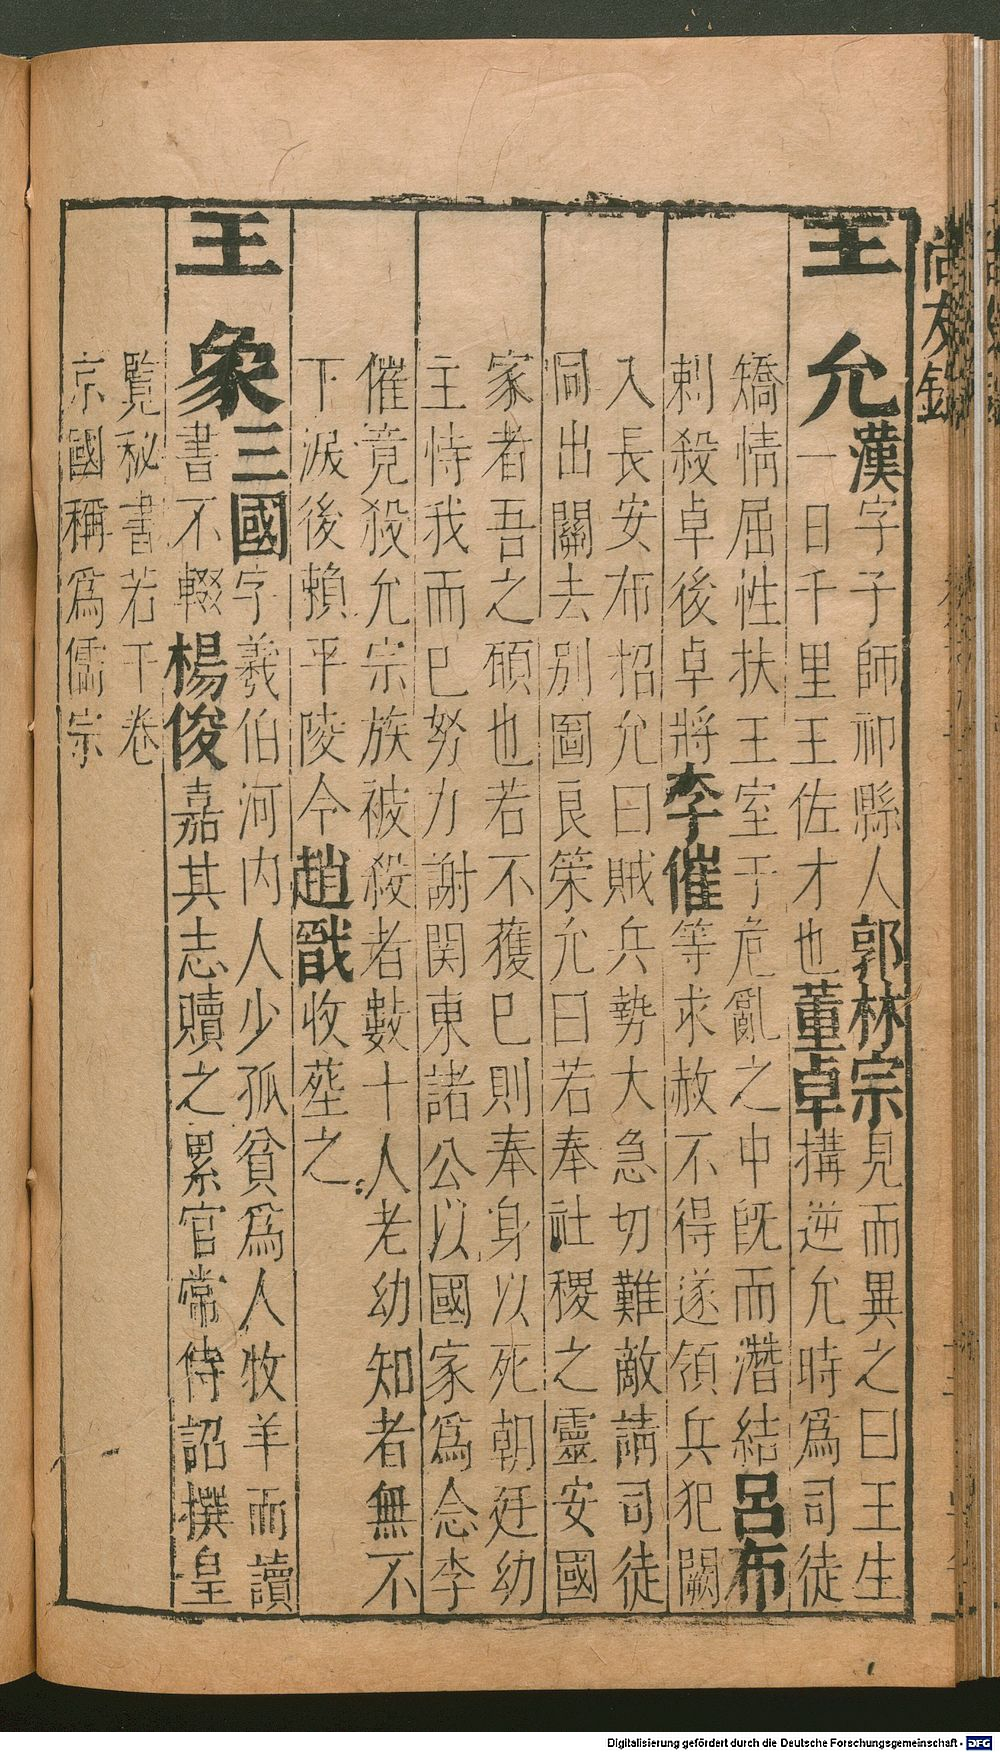 尚友錄
王允
漢字子師祁縣人郭林宗見而異之曰王生
一日千里王佐才也董卓搆逆允時爲司徒
矯情屈性扶王室于危亂之中旣而潛結呂布
刺殺卓後卓將李催等求赦不得遂領兵犯闕
入長安布招允曰賊兵勢大急切難敵請司徒
同出關去别圖良策允曰若奉社稷之靈安國
家者吾之碩也若不獲已則奉身以死朝廷幼
主恃我而已努力謝関東諸公以國家爲念李
催竟殺允宗族被殺者數十人老幼知者無不
下淚後賴平陵令趙戩收塟之
王象
三國字羲伯河内人少孤貧爲人牧羊而讀
書不輟楊俊嘉其志贖之累官常侍詔撰皇
覧秘書若干卷
京國稱爲儒宗
Digitalisierung gefördert durch die Deutsche Forschungsgemeinschaft - DFG